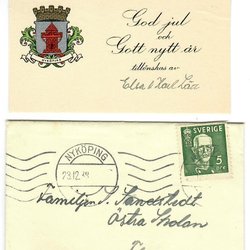 God jul
och
Gott nytt år
tillönskas av
Elsa & Karl
NYKÖPING
23.12
SVERIGE
5
ÖRE
Familjen S. Sandstedt
Östra Skolan